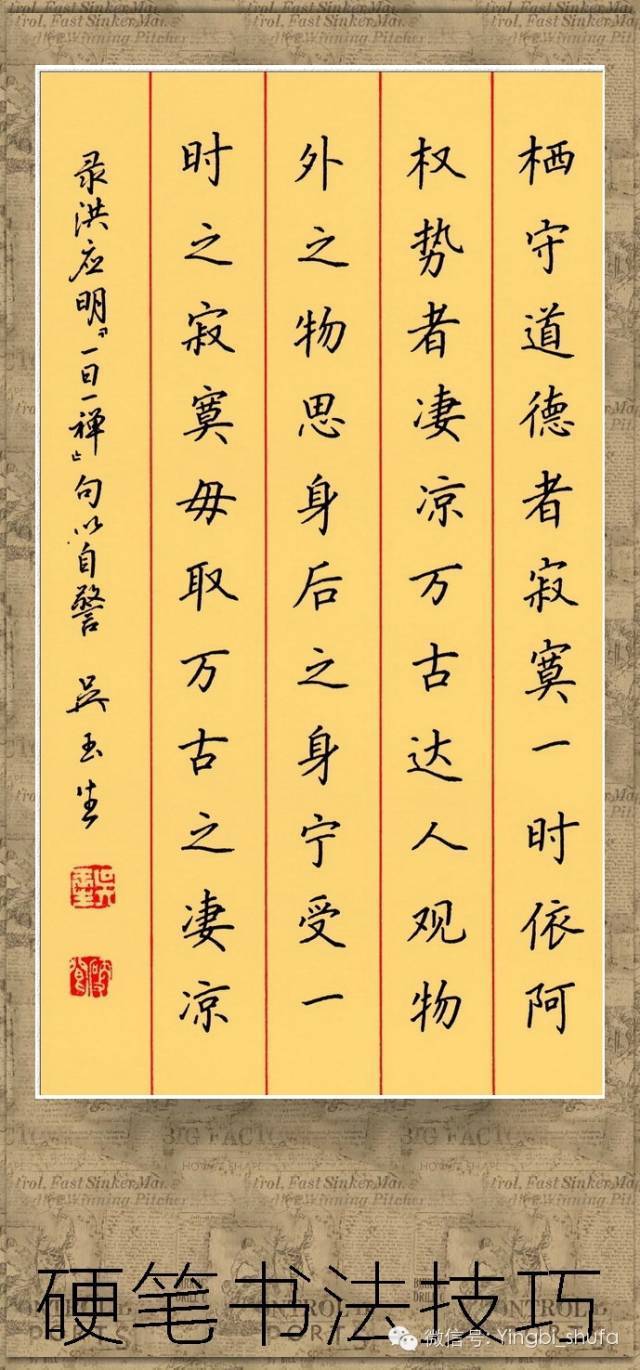 栖守道德者寂寞一时依阿
权势者凄凉万古达人观物
外之物思身后之身宁受一
时之寂寞毋取万古之凄凉
录洪应明『一日一禅』句以自警 吴玉生
硬笔书法技巧
微信号: Yingbi_shufa